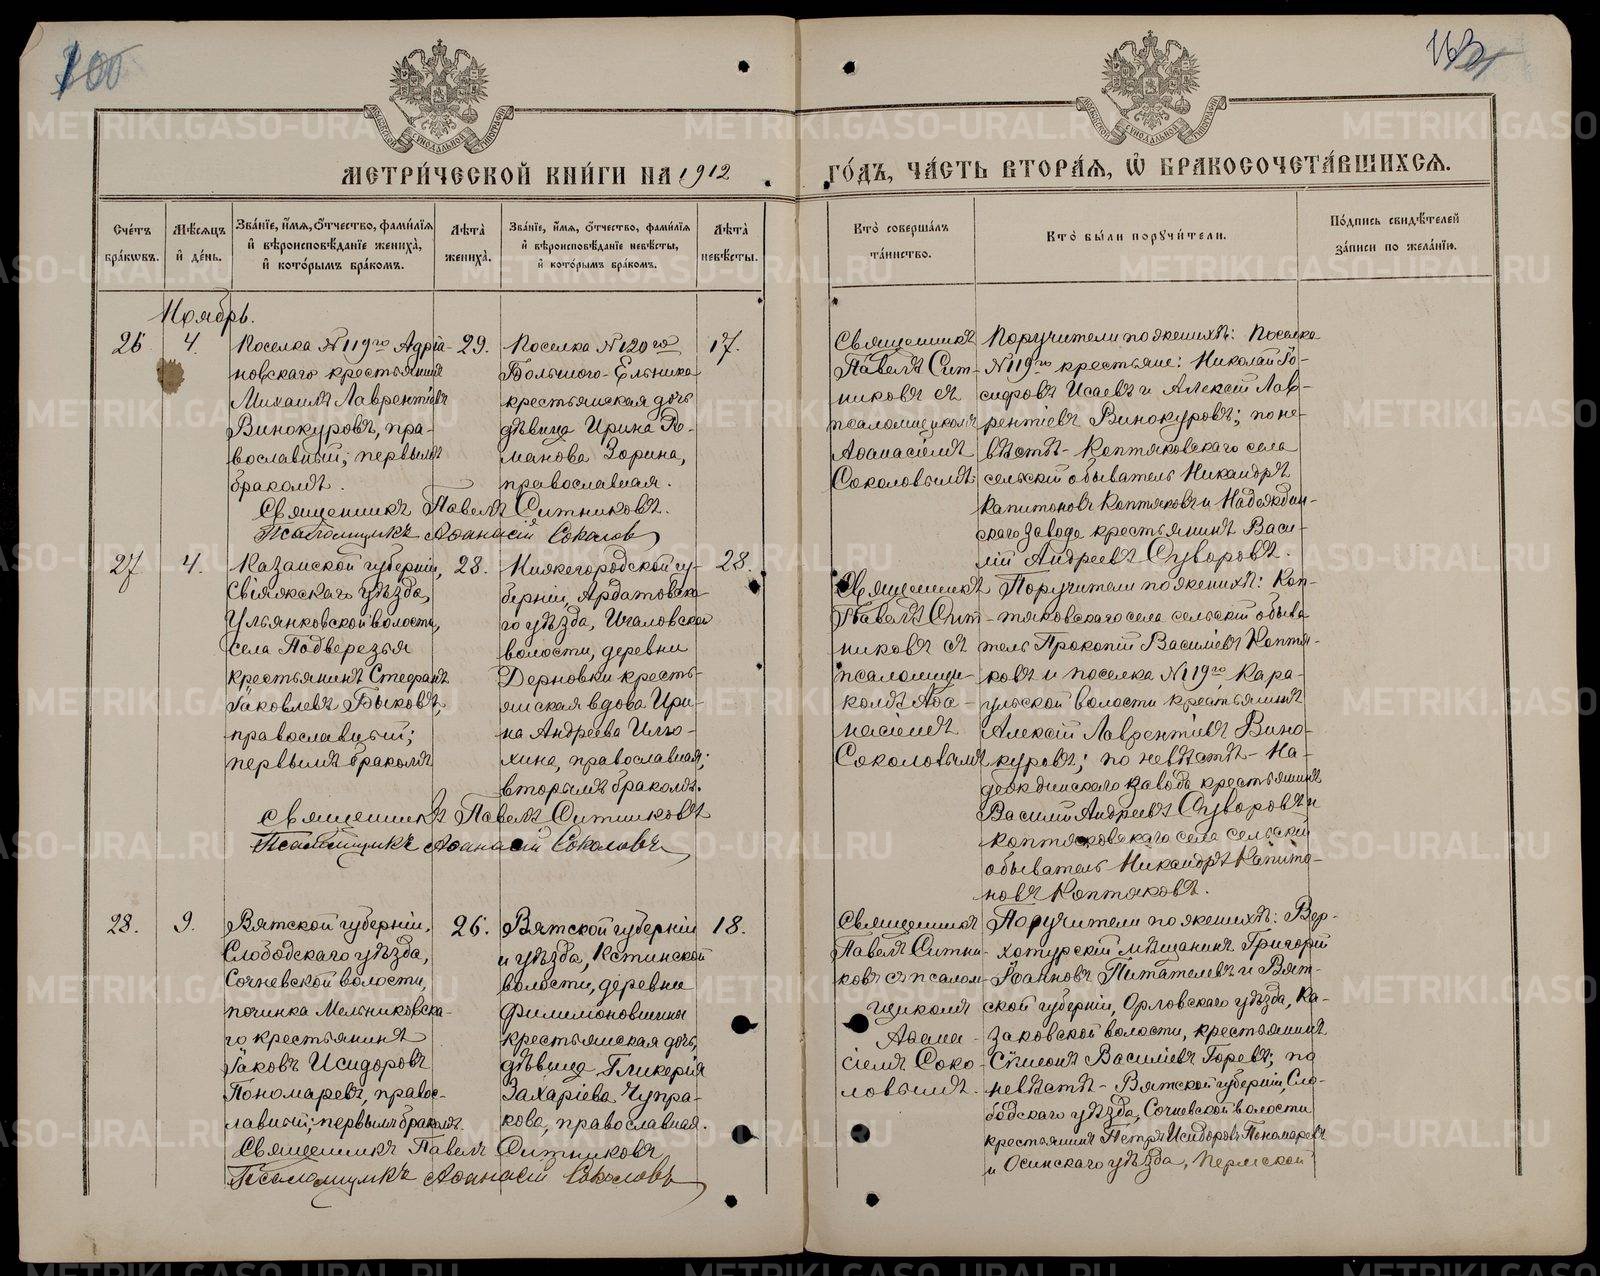 МЕТРИ́ЧЕСКОЙ КНИ́ГИ НА 1912
ГО́ДЪ, ЧА́СТЬ ВТОРА́Я, Ѡ БРАКОСОЧЕТА́ВШИХСЯ.
Сче́тъ бра́кѡвъ.
Мѣ́сяцъ и де́нь.
Зва́нїе, и́мя, ѻ҆́тчество, фами́лїя и вѣроисповѣ́данїе жениха̀, и кото́рымъ бра́комъ.
Лѣ́та жениха̀.
Зва́нїе, и́мя, ѻ҆́тчество, фами́лїя и вѣроисповѣ́данїе невѣ́сты, и кото́рымъ бра́комъ.
Лѣ́та невѣ́сты.
Кто̀ соверша́лъ та́инство.
Кто̀ бы́ли порꙋчи́тели.
По́дпись свидѣ́телей за́писи по жела́нїю.
Ноябрь.
26
4.
Поселка №119го Адріа-
новскаго крестьянинъ
Михаилъ Лаврентіевъ
Винокуровъ, пра-
вославный; первымъ
бракомъ.
29.
Поселка №120го
Большого-Ельника
крестьянская дочь
дѣвица Ирина Ро-
манова Зорина,
православная.
17.
Священникъ
Павелъ Сит-
никовъ съ
псаломщикомъ
Аѳанасіемъ
Соколовымъ
Поручители по женихѣ: Поселка
№119го крестьяне: Николай Іо-
сифовъ Исаевъ и Алексій Лав-
рентіевъ Винокуровъ; по не-
вѣстѣ - Коптяковскаго села
сельскій обыватель Никандръ
Капитоновъ Коптяковъ и Надеждин-
скаго завода крестьянинъ Васи-
лій Андреевъ Суворовъ.
Священникъ Павелъ Ситниковъ.
Псаломщикъ Аѳанасій Соколовъ
27
4.
Казанской губерніи,
Свіяжскаго уѣзда,
Ульянковской волости,
села Подберезья
крестьянинъ Стефанъ
Іаковлевъ Быковъ,
православный;
первымъ бракомъ
28.
Нижегородской гу-
берніи, Ардатовска-
го уѣзда, Ичаловской
волости, деревни
Дерновки кресть-
янская вдова Ири-
на Андреева Илю-
хина, православная;
вторымъ бракомъ.
28.
Священникъ
Павелъ Сит-
никовъ съ
псаломщи-
комъ Аѳа-
насіемъ
Соколовымъ
Поручители по женихѣ: Коп-
тяковскаго села сельскій обыва
тель Прокопій Василіевъ Коптя-
ковъ и поселка №119го Кара-
ульской волости крестьянинъ
Алексій Лаврентіевъ Вино-
куровъ; по невѣстѣ - На-
деждинскаго завода крестьянинъ
Василій Андреевъ Суворовъ и
Коптяковскаго села сельскій
обыватель Никандръ Капито-
новъ Коптяковъ.
Священникъ Павелъ Ситниковъ
Псаломщикъ Аѳанасій Соколовъ
28.
9.
Вятской губерніи,
Слободскаго уѣзда,
Сочневской волости,
починка Мельниковска-
го крестьянинъ
Іаковъ Исидоровъ
Пономаревъ, правос-
лавный; первымъ бракомъ.
26.
Вятской губерніи
и уѣзда, Кстининской
волости, деревни
Филимоновщины
крестьянская дочь,
дѣвица Гликерія
Захаріева Чупра-
кова, православная.
18.
Священникъ
Павелъ Ситни-
ковъ съ псалом-
щикомъ
Аѳана-
сіемъ Соко-
ловымъ.
Поручители по женихѣ: Вер-
хотурскій мѣщанинъ Григорій
Іоанновъ Питателевъ и Вят-
ской губерніи, Орловскаго уѣзда, Ка-
заковской волости, крестьянинъ
Симеонъ Василіевъ Горевъ; по
невѣстѣ - Вятской губерніи, Сло-
бодскаго уѣзда, Сочневской волости
крестьянинъ Петръ Исидоровъ Пономаревъ
и Осинскаго уѣзда, Пермской
Священникъ Павелъ Ситниковъ
Псаломщикъ Аѳанасій Соколовъ
METRIKI.GASO-URAL.RU